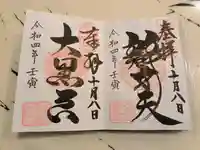 奉拝
十月八日
辯才天
令和四年壬寅
奉拝
十月八日
大黒天
令和四年壬寅